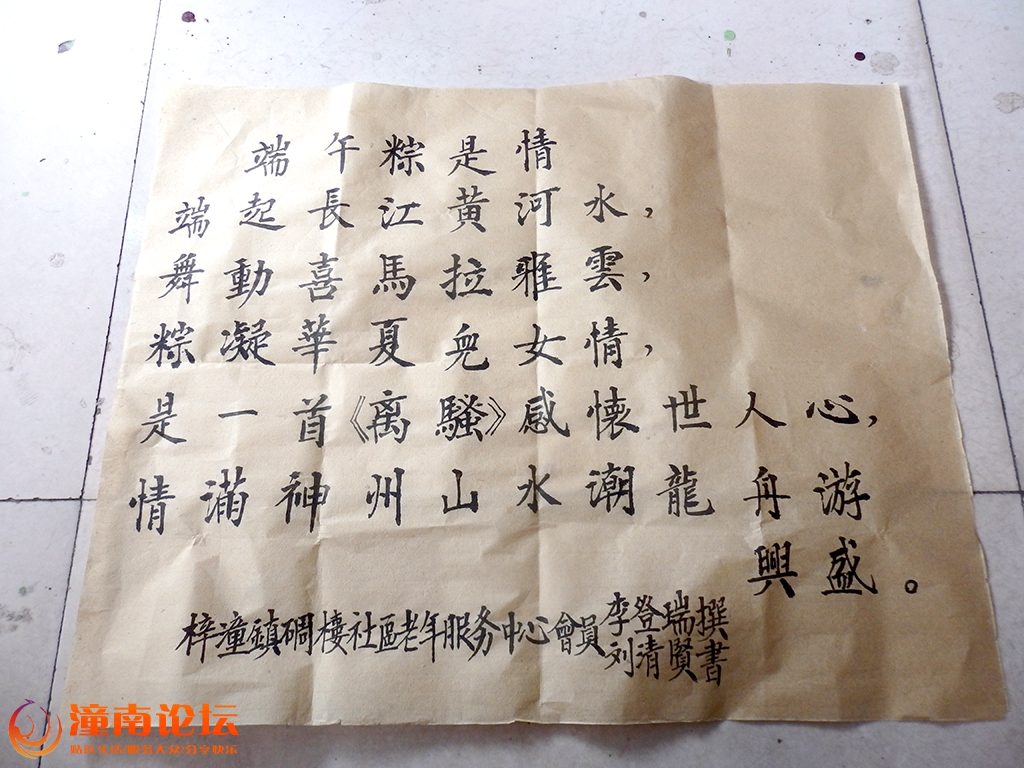 端午粽是情
端起長江黄河水，
舞動喜馬拉雅雲，
粽凝華夏兒女情，
是一首《离騷》感懷世人心，
情满神州山水潮龍舟游
興盛。
梓潼鎮碉樓社區老年服务中心會員李登瑞撰
刘清賢書
潼南论坛